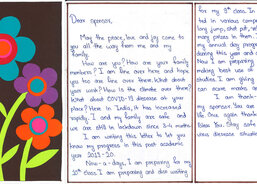 Dear sponsor,
May the peace, love and joy come to
you all the way from me and my
family.
How are you? How are your family
members? I am fine over here and hope
you too are fine over there. What about
your work? How is the climate over there?
What about COVID-19 disease at your
place? Here in India, it has increased
rapidly. I and my family are safe and
we are still in lockdown since 3-4 months.
I am writing this letter to let you
know my progress in this past academic
year 2019-20.
Now-a-days, I am preparing for my
10th class. I am preparing and also writing
for my 9th class. In
ted in various compe
long jump, shot put,
many prizes in them.
my annual day progr
during this year and
Now I am preparing
making best use of
studies. I am giving
can score marks a
I am thank
my sponsor. You are
life. Once again than
bless You. Stay safe
virus disease situati